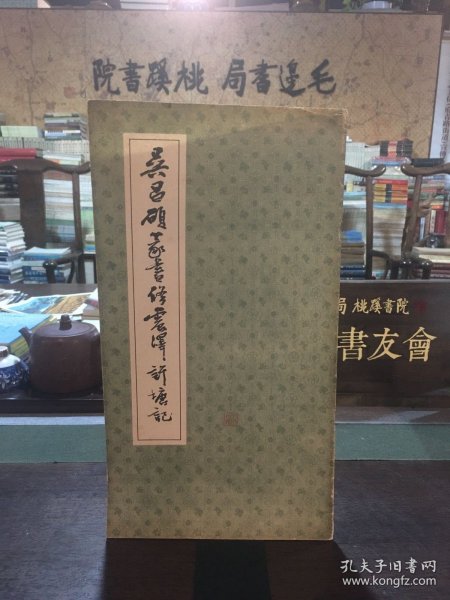 毛邊書局 桃蹊書院
吳昌碩篆書修震澤許塘記
局 桃蹊書院
書友會
孔夫子旧书网
www.kongfz.com